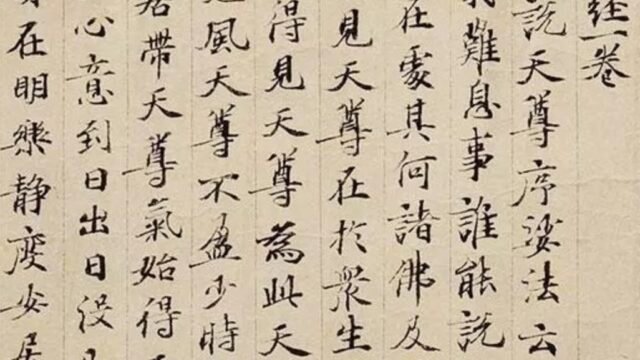 經一卷
說天尊序娑法云
難息事誰能說
在處其何諸佛及
見天尊在於衆生
得見天尊為此天
風天尊不盈少時
居帶天尊氣始得
心意到日出日沒
在明樂靜度安居